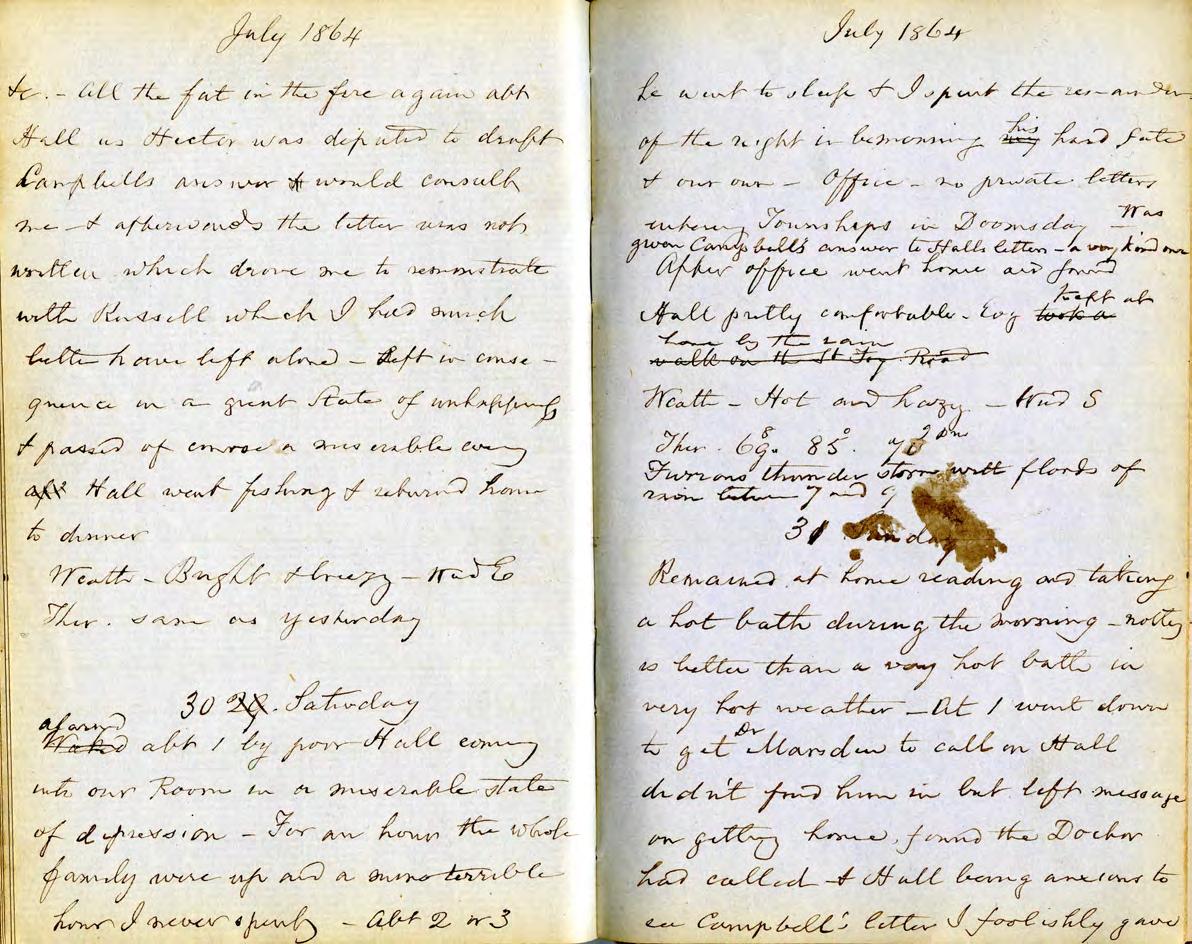 July 1864
&c. - All the fat in the fire again abt
Hall as Hector was deputed to draft
Campbells answer & would consult
me - & afterwards the letter was not
written which drove me to remonstrate
with Russell which I had much
better have left alone - Left in conse-
quence in a great State of unhappiness
& passed of course a miserable eveng
Hall went fishing & returned home
to dinner
Weath - Bright & breezy - Wind E
Ther. same as yesterday
30 29. Saturday
alarmed
Waked abt 1 by poor Hall coming
into our Room in a miserable state
of depression - For an hour the whole
family were up and a more terrible
hour I never spent - Abt 2 or 3
July 1864
he went to sleep & I spent the remainder
of the night in bemoaning my his hard fate
& our own - Office - no private letters
entering Townships in Doomsday - Was
given Campbell's answer to Halls letter - a very kind one
After office went home and found
Hall pretty comfortable - Evg took a Kept at
home by the rain
walk on the St Foy Road
Weath - Hot and hazy - Wind S
Ther. 68. 85.
Furious thunder storm with floods of
rain between 7 and 9
31 Sunday
Remained at home reading and taking
a hot bath during the morning - nothg
is better than a very hot bath in
very hot weather - At 1 went down
to get Dr Marsden to call on Hall
didn't find him in but left message
on getting home, found the Doctor
had called - & Hall being anxious to
see Campbell's letter I foolishly gave